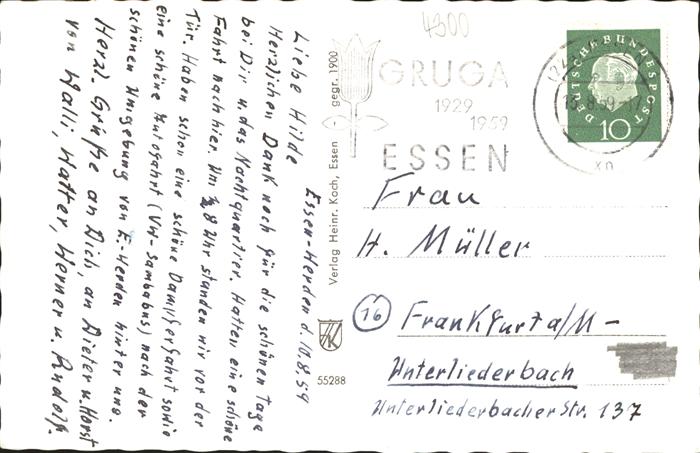 Essen-Werden d. 10.8.59
Liebe Hilde
Herzlichen Dank noch für die schönen Tage
bei Dir u. das Nachtquartier. Hatten eine schöne
Fahrt nach hier. Um 8 Uhr standen wir vor der
Tür. Haben schon eine schöne Dampferfahrt sowie
eine schöne Autofahrt (VW-Sambabus) nach der
schönen Umgebung von E-Werden hinter uns.
Herzl. Grüße an Dich, an Dieter u. Horst
von Walli, Walter, Werner u. Rudolf.
Verlag Heinr. Koch, Essen gegr. 1900
55288
4300
GRUGA
1929
1959
ESSEN
8.59-17
DEUTSCHE BUNDESPOST
10
Frau
H. Müller
16 Frankfurt a/M -
Unterliederbach
Unterliederbacher Str. 137